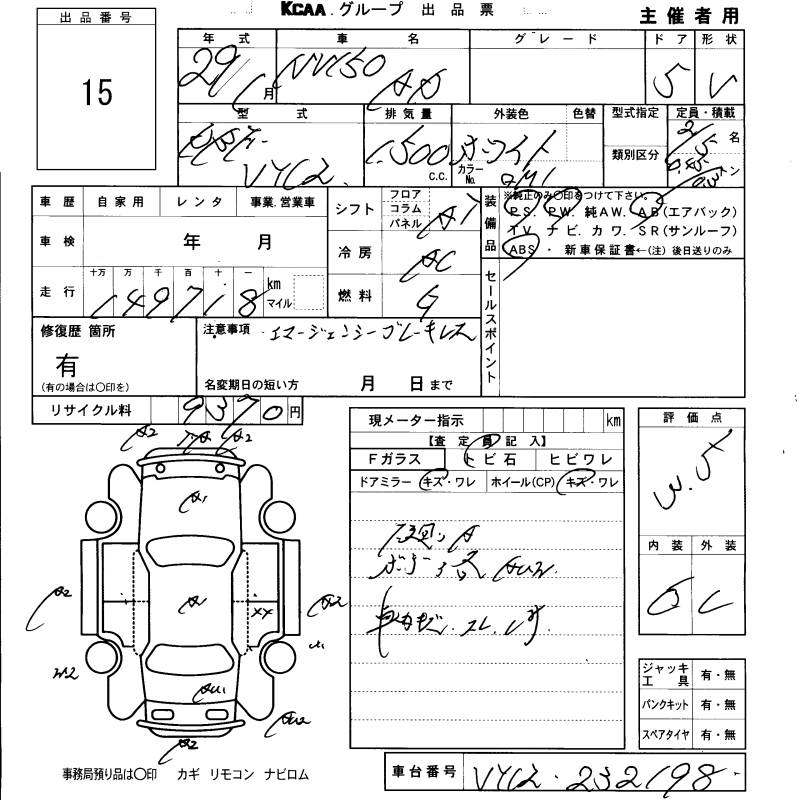 KCAA.グループ 出品票
主催者用
出品番号
15
年式 車名 グレード ドア 形状
29/1月 NV150 AD 5 V
型式 排気量 外装色 色替 型式指定 定員・積載
VY12 1500 C.C. ホワイト カラーNo. QM1 類別区分 2/5名 トン
車歴 自家用 レンタ 事業.営業車
シフト フロア コラム パネル AT
装備品 ※純正のみ〇印をつけて下さい。
P.S. P.W. 純A.W. A.B(エアバック)
T.V. ナビ. カワ. S.R(サンルーフ)
ABS・新車保証書←(注)後日送りのみ
車検 年 月
冷房 AC
走行 十万 万 千 百 十 一
149718 km マイル
燃料 G
セールスポイント
修復歴 箇所
有
(有の場合は〇印を)
注意事項 エマージェンシーブレーキレス
名変期日の短い方 月 日まで
リサイクル料 9370円
現メーター指示 km
【査定員記入】
Fガラス トビ石 ヒビワレ
ドアミラー キズ・ワレ ホイール(CP) キズ・ワレ
評価点
3.5
内装 外装
C
A2
A2
A1
A
XX
A2
A2
W2
AU1
AU2
A2
ジャッキ工具 有・無
パンクキット 有・無
スペアタイヤ 有・無
事務局預り品は〇印 カギ リモコン ナビロム
車台番号 VY12-232198